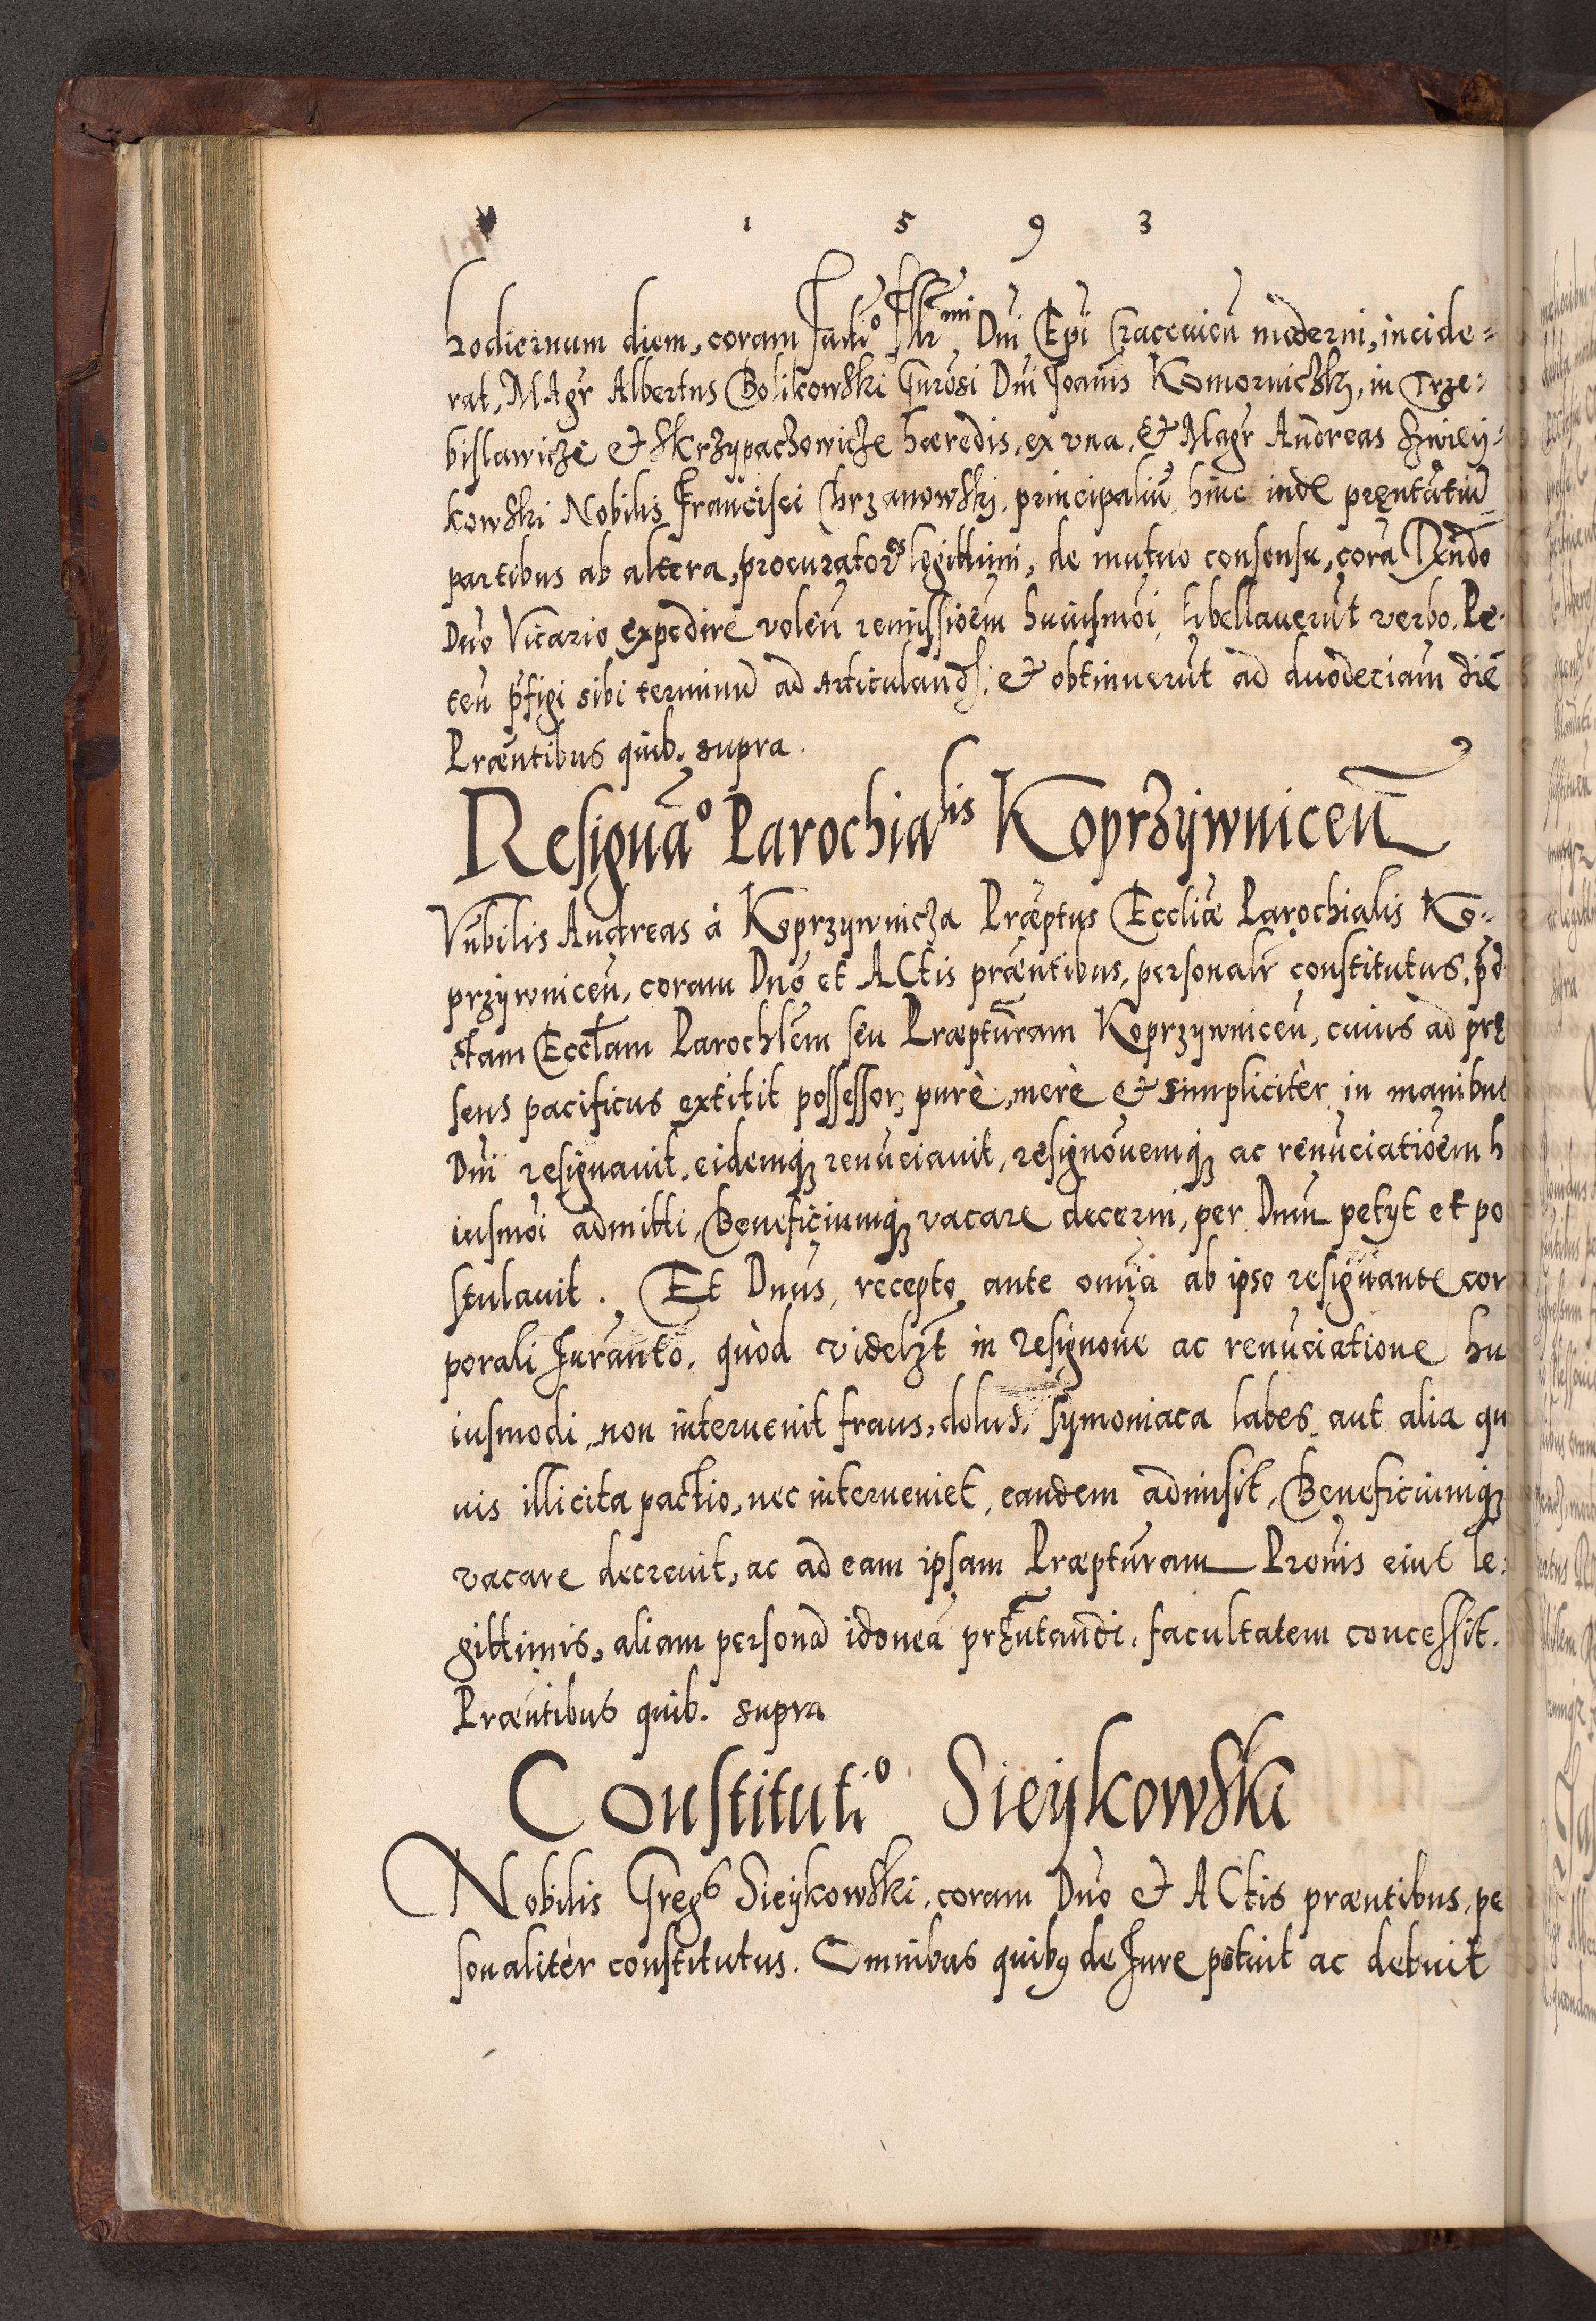 1 5 9 3
hodiernum diem, coram Iudio Illr̄mi Dni Epi Cracouien̄ moderni, incide=
rat, MAgr̄ Albertus Bolikowski Gn̄rosi Dni Joan̄is Komorniczkj, in Trze=
bislawicze & Skrzypaczowicze hæredis, ex vna, & Magr̄ Andreas
kowski Nobilis Francisci Chrzanowskj, principaliū hinc inde pręntatiū
partibus ab altera, procuratores legittimi, de mutuo consensu, corā Rn̄do
Dno Vicario expedire volen̄ remissioēm huiusmōi, libellauerūt verbo. Pe=
ten̄ p̄figi sibi terminū ad Articuland̄: & obtinuerūt ad duodeciam̄ diē
Præn̄tibus quib. supra.
Resignāo Parochialis Koprzywnicen̄
Vn̄bilis Andreas à Koprzywnicza Præp̄tus Eccliæ Parochialis Ko=
przywnicen̄, coram Dno et ACtis præn̄tibus, personalr̄ constitutus, p̄d
ctam Eccl̄am Parochl̄em seu Præpturam Koprzywnicen̄, cuius ad prę
sens pacificus extitit possessor, purè, merè & simplicitèr in manibus
Dni resignauit, eidemq̨ renūciauit, resignōuemq̨ ac renūciatioēm h
iusmōi admitti, Beneficiumq̨ vacare decerni, per Dnm̄ petyt et po
stulauit. Et Dnus, recepto ante omn̄ia ab ipso resignante cor
porali Iurānto. quòd videlzt̄ in resignōne ac renūciatione hu
iusmodi, non interuenit fraus, dolus, symoniaca labes, aut alia qu
uis illicita pactio, nec interueniet, eandem admisit, Beneficiumq̨
vacare decreuit, ac ad eam ipsam Præpturam Pronis eiut le=
gittimis, aliam personā idoneā prę̄ntandi, facultatem concessit.
Præn̄tibus quib. supra
Constitutio Sieykowski
Nobilis Gregs Sieykowski, coram Dno & ACtis præntibus, pe
sonalitèr constitutus. Omnibus quibꝰ de Iure potuit ac debuit